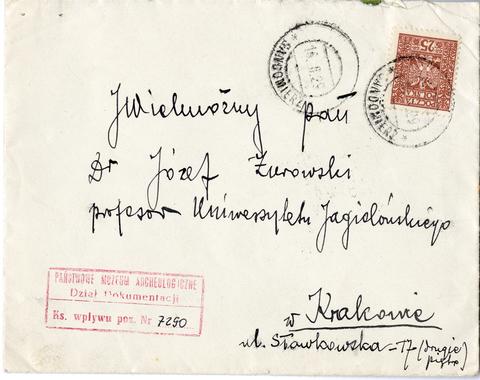 SANDOMIERZ
16.8.29
25
POCZTA
SANDOMIERZ
JWielmożny pan
Dr Józef Żurowski
profesor Uniwersytetu Jagielońskiego
w Krakowie
ul. Sławkowska - 17 (drugie
piętro)
PAŃSTWOWE MUZEUM ARCHEOLOGICZNE
Dział Dokumentacji
Ks. wpływu poz. Nr 7290